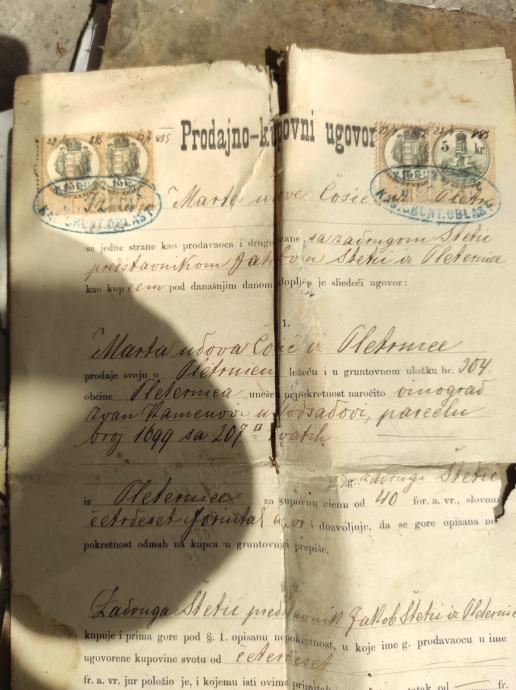 Prodajno-kupovni ugovor
15 kr
15 kr
15 kr
5 kr
KR. GRUNT. OBLAST
KR. GRUNT. OBLAST
Marte udove Ćosić
sa jedne strane kao prodavaoca i druge strane sa zadrugom Štetić
predstavnikom Jakobom Štetić iz Pleternice
kao kupcem pod današnjim danom sklopljen je sliedeći ugovor:
1.
Marta udova Ćosić iz Pletrnice
prodaje svoju u Pletrnici ležeću i u gruntovnom uložku br. 304
občine Pleternica unešenu nepokretnost naročito vinograd
zvan Kamenovi u parcelu
broj 1699 sa 207 □ hvatih
zadrugi Štetić
iz Pleternice za kupovnu cienu od 40 for. a. vr., slovom
četrdeset forinti a. vr. i dozvoljuje, da se gore opisana ne-
pokretnost odmah na kupca u gruntovnici prepiše.
§
Zadruga Štetić predstavnik Jakob Štetić iz Pleternice
kupuje i prima gore pod §. 1. opisanu nepokretnost, u koje ime g. prodavaocu u ime
ugovorene kupovine svotu od četerdeset
fr. a. vr. jur položio je, i kojemu isti ovime od — fr.